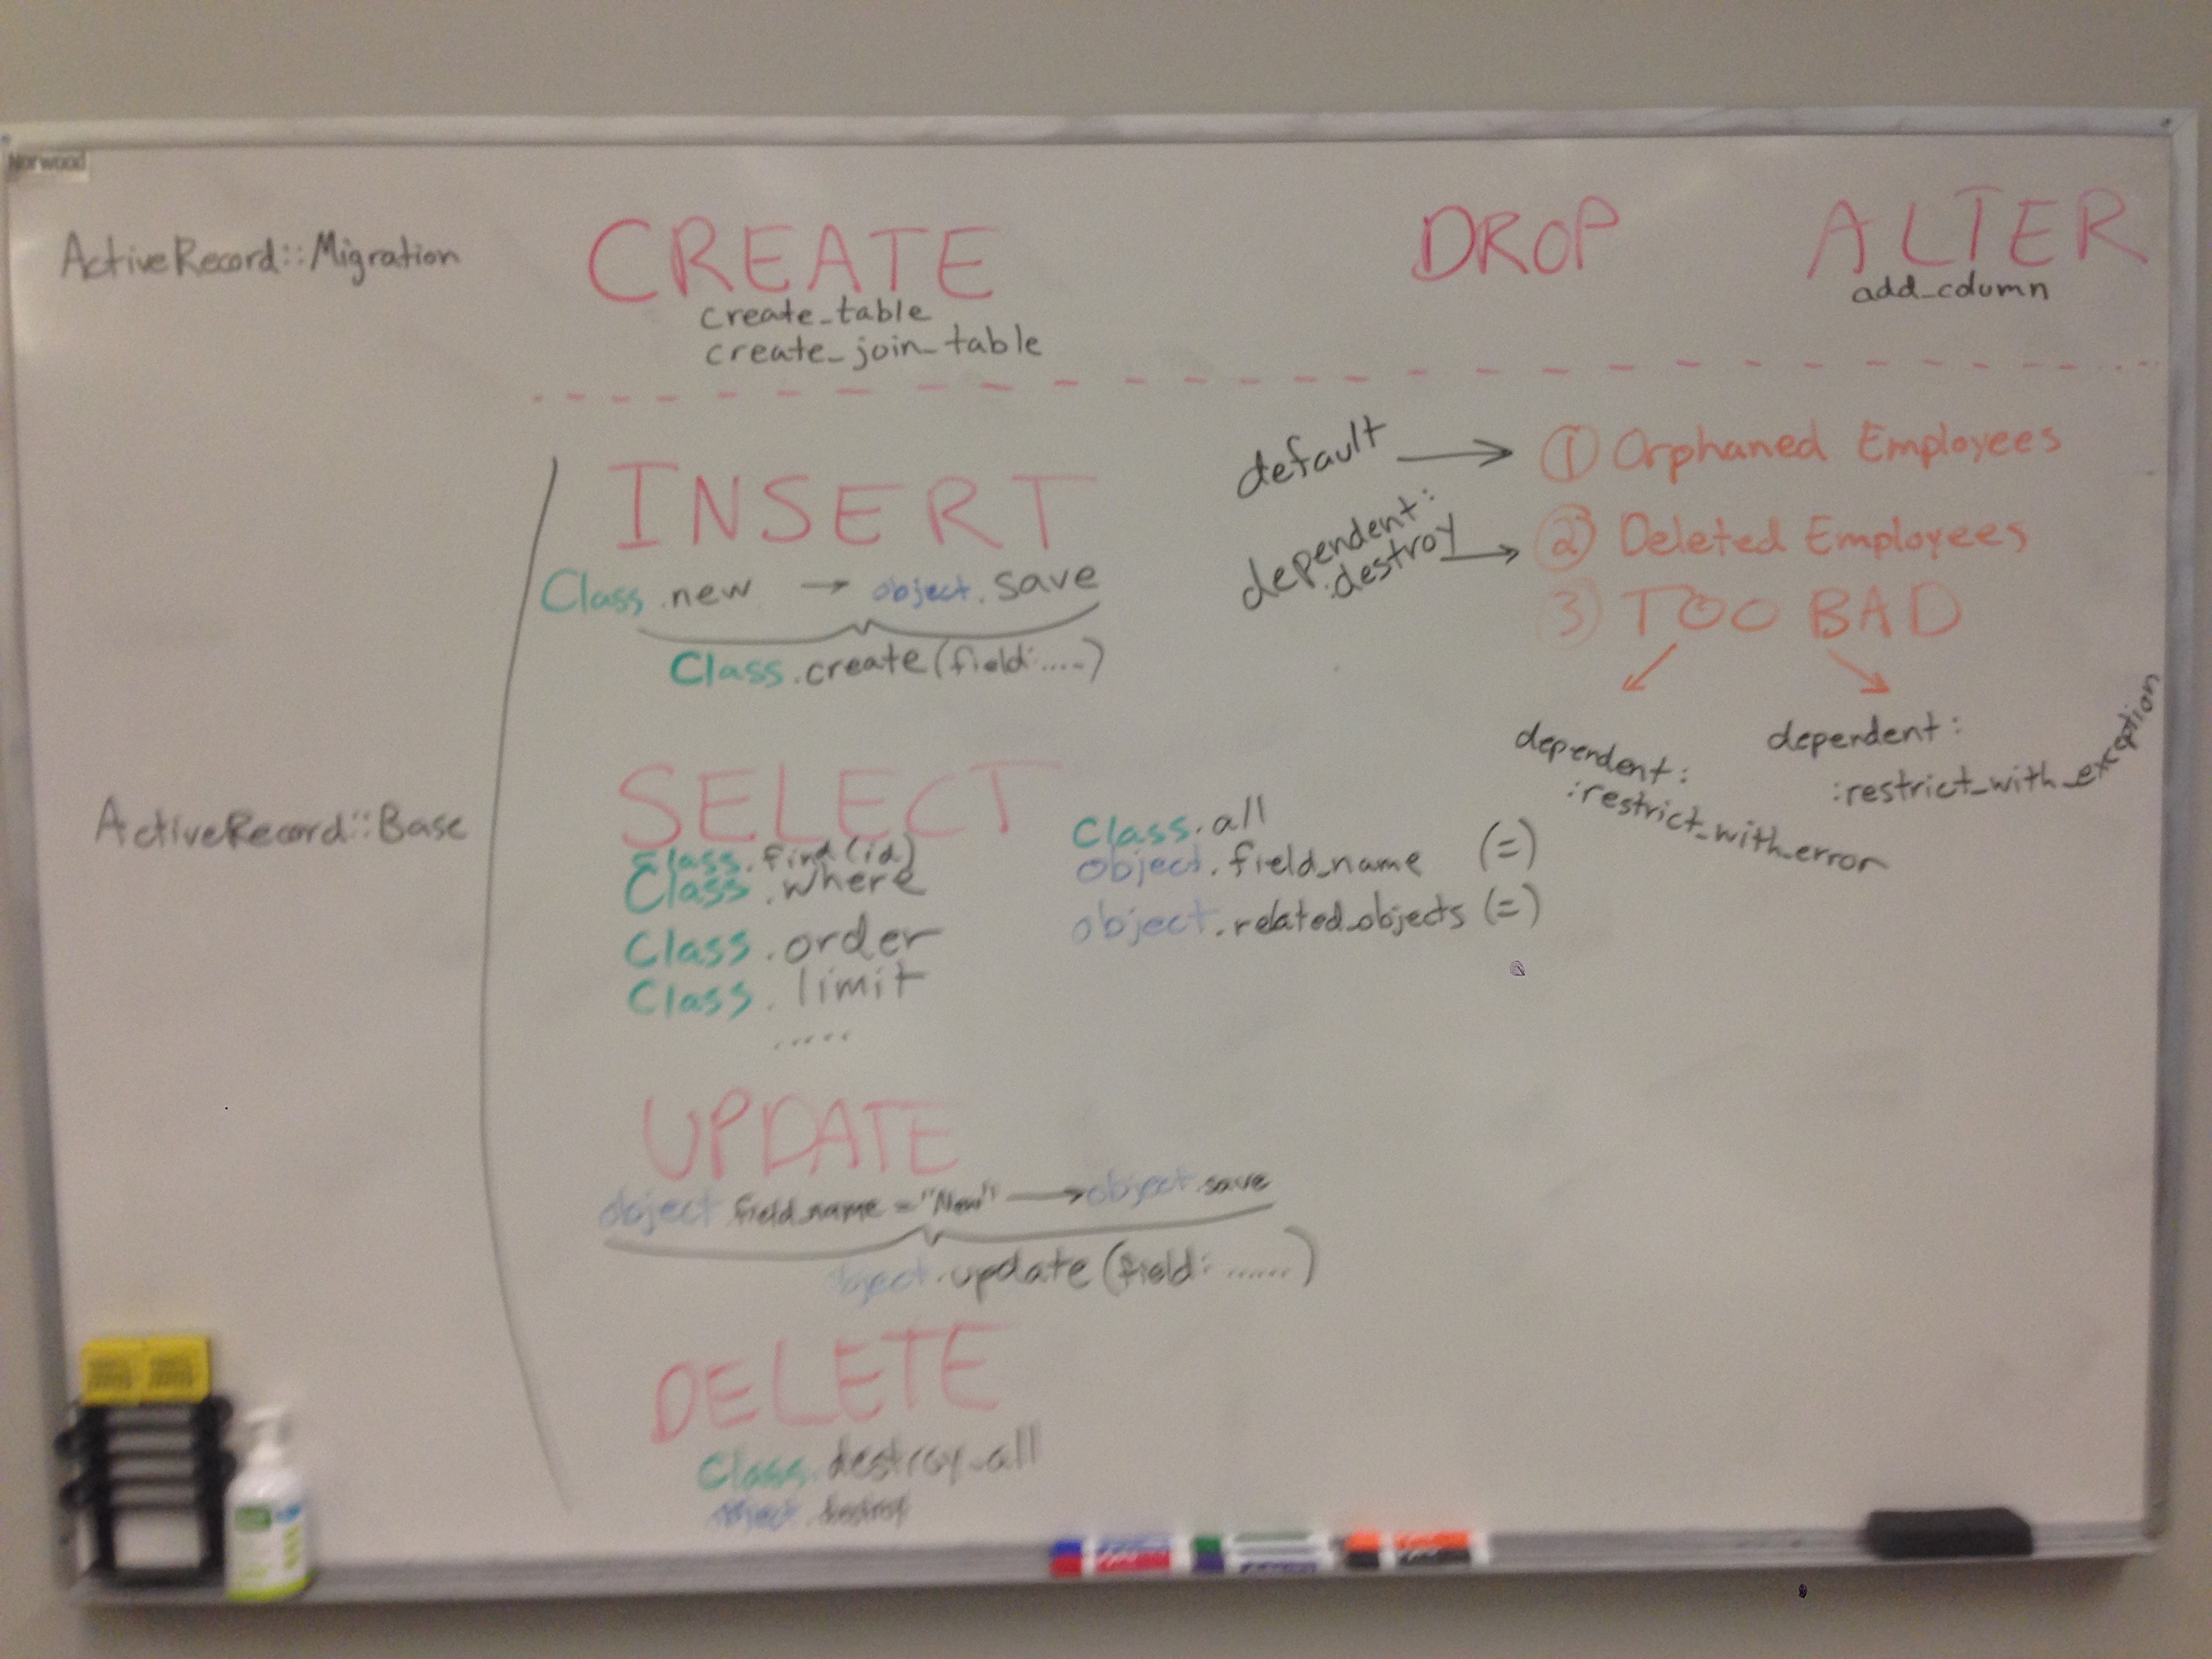 Norwood
ActiveRecord::Migration
CREATE
create_table
create_join_table
DROP
ALTER
add_column
ActiveRecord::Base
INSERT
Class.new → object.save
Class.create(field:.....)
default → ① Orphaned Employees
dependent: :destroy → ② Deleted Employees
③ TOO BAD
dependent:
:restrict_with_error
dependent:
:restrict_with_exception
SELECT
Class.find(id)
Class.where
Class.order
Class.limit
.....
Class.all
object.field_name (=)
object.related_objects (=)
UPDATE
object.field_name = "New" → object.save
object.update(field: ......)
DELETE
Class.destroy_all
object.destroy